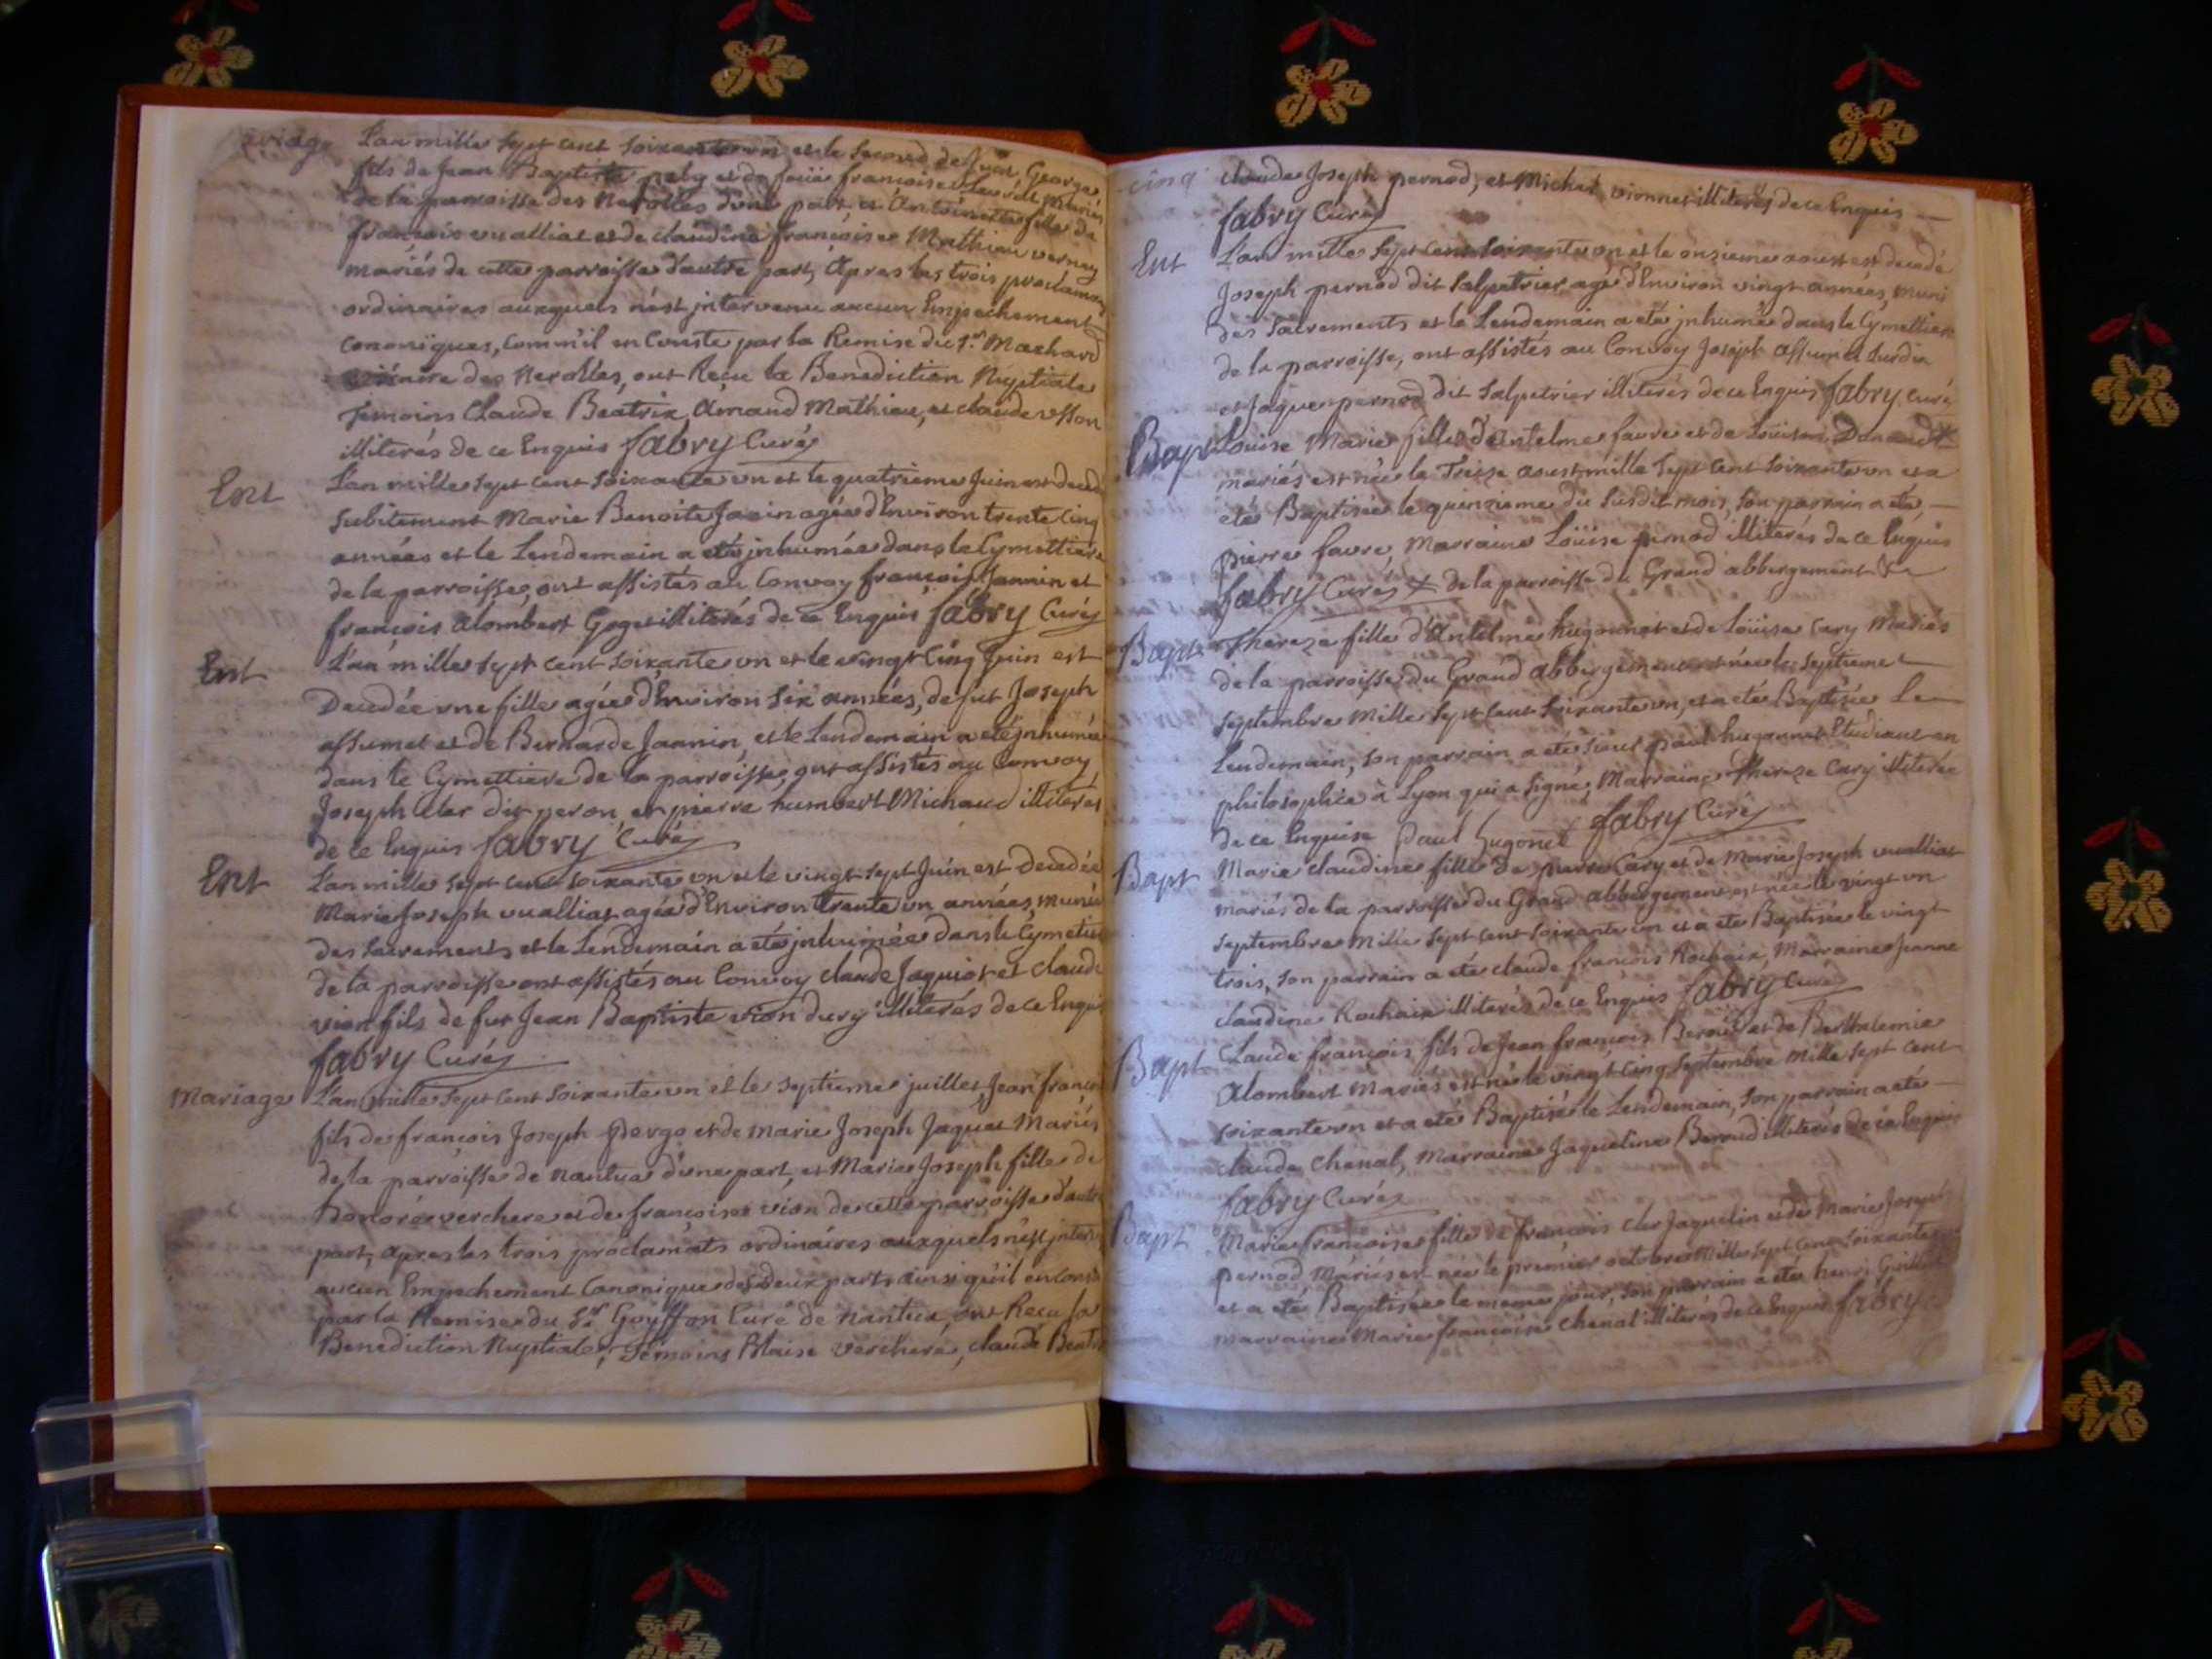 L'an mille sept cent soixante un et le second de George
fils de Jean Baptiste et de françoise mariés
de la parroisse des Nerolles d'une part et Antoinette fille de
françois vualliat et de claudine françoise Mathieu verney
mariés de cette parroisse d'autre part, apres les trois proclamats
ordinaires auxquels n'est jntervenu aucun Empechement
canoniques, comm'il en Conste par la Remise du Sr Machard
vicaire des Nerolles, ont Reçu la Benediction Nuptiale
Temoins Claude Beatrix, Amand Mathieu, et claude
illiterés de ce Enquis fabry Curé
Ent L'an mille sept cent soixante un et le quatrieme Juin est decedé
subitement Marie Benoite Janin agée d'Environ trente Cinq
années et le Lendemain a eté jnhumée dans le Cymettiere
de la parroisse, ont assistés au Convoy françois Jannin et
françois alombert Goget illiterés de ce Enquis fabry Curé
Ent L'an mille sept cent soixante un et le vingt Cinq Juin est
Decedée une fille agée d'Environ six années, de fut Joseph
assumet et de Bernarde Jannin, et le Lendemain a eté jnhumée
dans le Cymettiere de la parroisse, ont assistés au Convoy
Joseph cler dit peron, et pierre humbert Michaud illiterés
de ce Enquis fabry Curé
Ent L'an mille sept cent soixante un et le vingt sept Juin est Decedée
Marie Joseph vualliat agée d'Environ trente un années, munie
des sacrements et le Lendemain a eté jnhumée dans le Cymetiere
de la parroisse ont assistés au Convoy claude Jaquiot et claude
vion fils de fut Jean Baptiste vion dury illiterés de ce Enquis
fabry Curé
Mariage L'an mille sept cent soixante un et le septieme juillet Jean françois
fils de françois Joseph pergo et de Marie Joseph Jaquet Mariés
de la parroisse de nantua d'une part, et Marie Joseph fille de
honoré verchere et de françoise vion de cette parroisse d'autre
part, apres les trois proclamats ordinaires auxquels n'est jnterv
aucun Empechement Canonique des deux parts ainsi qu'il en Conste
par la Remise du Sr Goyffon Curé de Nantua, ont Reçu la
Benediction Nuptiale, Temoins Blaise verchere, claude Beatrix
cinq claude Joseph pernod, et Michel vionnet illiterés de ce Enquis
fabry Curé
Ent L'an mille sept cent soixante un et le onzieme aoust est decedé
Joseph pernod dit salpetrier agé d'Environ vingt années, muni
des sacrements et le Lendemain a eté jnhumé dans le Cymettiere
de la parroisse, ont assistés au Convoy Joseph assumet
et Jaques pernod dit salpetrier illiterés de ce Enquis fabry Curé
Bapt Louise Marie fille d'antelme favre et de Louise
mariés est née le Treize aoust mille sept cent soixante un et a
eté Baptisée le quinzieme du susdit mois, son parrain a eté
pierre favre, Marraine Louise pernod illiterés de ce Enquis
fabry Curé X de la parroisse du Grand abbergement
Bapt Thereze fille d'Antelme hugonnet et de Louise Cary Mariés
de la parroisse du Grand abbergement est née le septieme
septembre Mille sept cent soixante un, et a eté Baptisée Le
Lendemain, son parrain a eté sieur paul hugonnet Etudiant en
philosophie à Lyon qui a signé, Marraine Thereze Cary illiterée
de ce Enquise Paul hugonet fabry Curé
Bapt Marie claudine fille de pierre Cary et de Marie Joseph vualliat
mariés de la parroisse du Grand abbergement est née le vingt un
septembre Mille sept cent soixante un et a eté Baptisée le vingt
trois, son parrain a eté claude françois Rochaix, Marraine Jeanne
claudine Rochaix illiterés de ce Enquis fabry Curé
Bapt Claude françois fils de Jean françois Beroud et de Barthelemie
Alombert Mariés est né le vingt Cinq septembre Mille sept cent
soixante un et a eté Baptisé le Lendemain, son parrain a eté
claude Chenal, Marraine Jaqueline Beroud illiterés de ce Enquis
fabry Curé
Bapt Marie françoise fille de françois cler Jaquelin et de Marie Joseph
pernod Mariés est née le premier octobre Mille sept cent soixante
et a eté Baptisée le meme jour, son parrain a eté henri
marraine Marie françoise Chenal illiterés de ce Enquis fabry